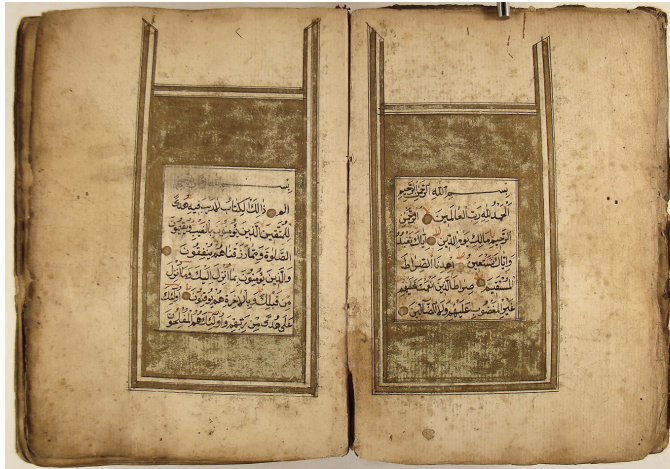 بِسْمِ اللهِ الرَّحْمٰنِ الرَّحِيمِ
اَلْحَمْدُ لِلّٰهِ رَبِّ الْعَالَمِينَ الرَّحْمٰنِ
الرَّحِيمِ مَالِكِ يَوْمِ الدِّينِ اِيَّاكَ نَعْبُدُ
وَاِيَّاكَ نَسْتَعِينُ اِهْدِنَا الصِّرَاطَ
الْمُسْتَقِيمَ صِرَاطَ الَّذِينَ اَنْعَمْتَ عَلَيْهِمْ
غَيْرِ الْمَغْضُوبِ عَلَيْهِمْ وَلَا الضَّالِّينَ
بِسْـ
الم ذَالِكَ الْكِتَابُ لَا رَيْبَ فِيهِ هُدًى
لِلْمُتَّقِينَ الَّذِينَ يُؤْمِنُونَ بِالْغَيْبِ وَيُقِيمُونَ
الصَّلَوةَ وَمِمَّا رَزَقْنَاهُمْ يُنْفِقُونَ
وَالَّذِينَ يُؤْمِنُونَ بِمَا اُنْزِلَ اِلَيْكَ وَمَا اُنْزِلَ
مِنْ قَبْلِكَ وَبِالْاٰخِرَةِ هُمْ يُوقِنُونَ اُولٰئِكَ
عَلَى هُدًى مِنْ رَبِّهِمْ وَاُولٰئِكَ هُمُ الْمُفْلِحُونَ